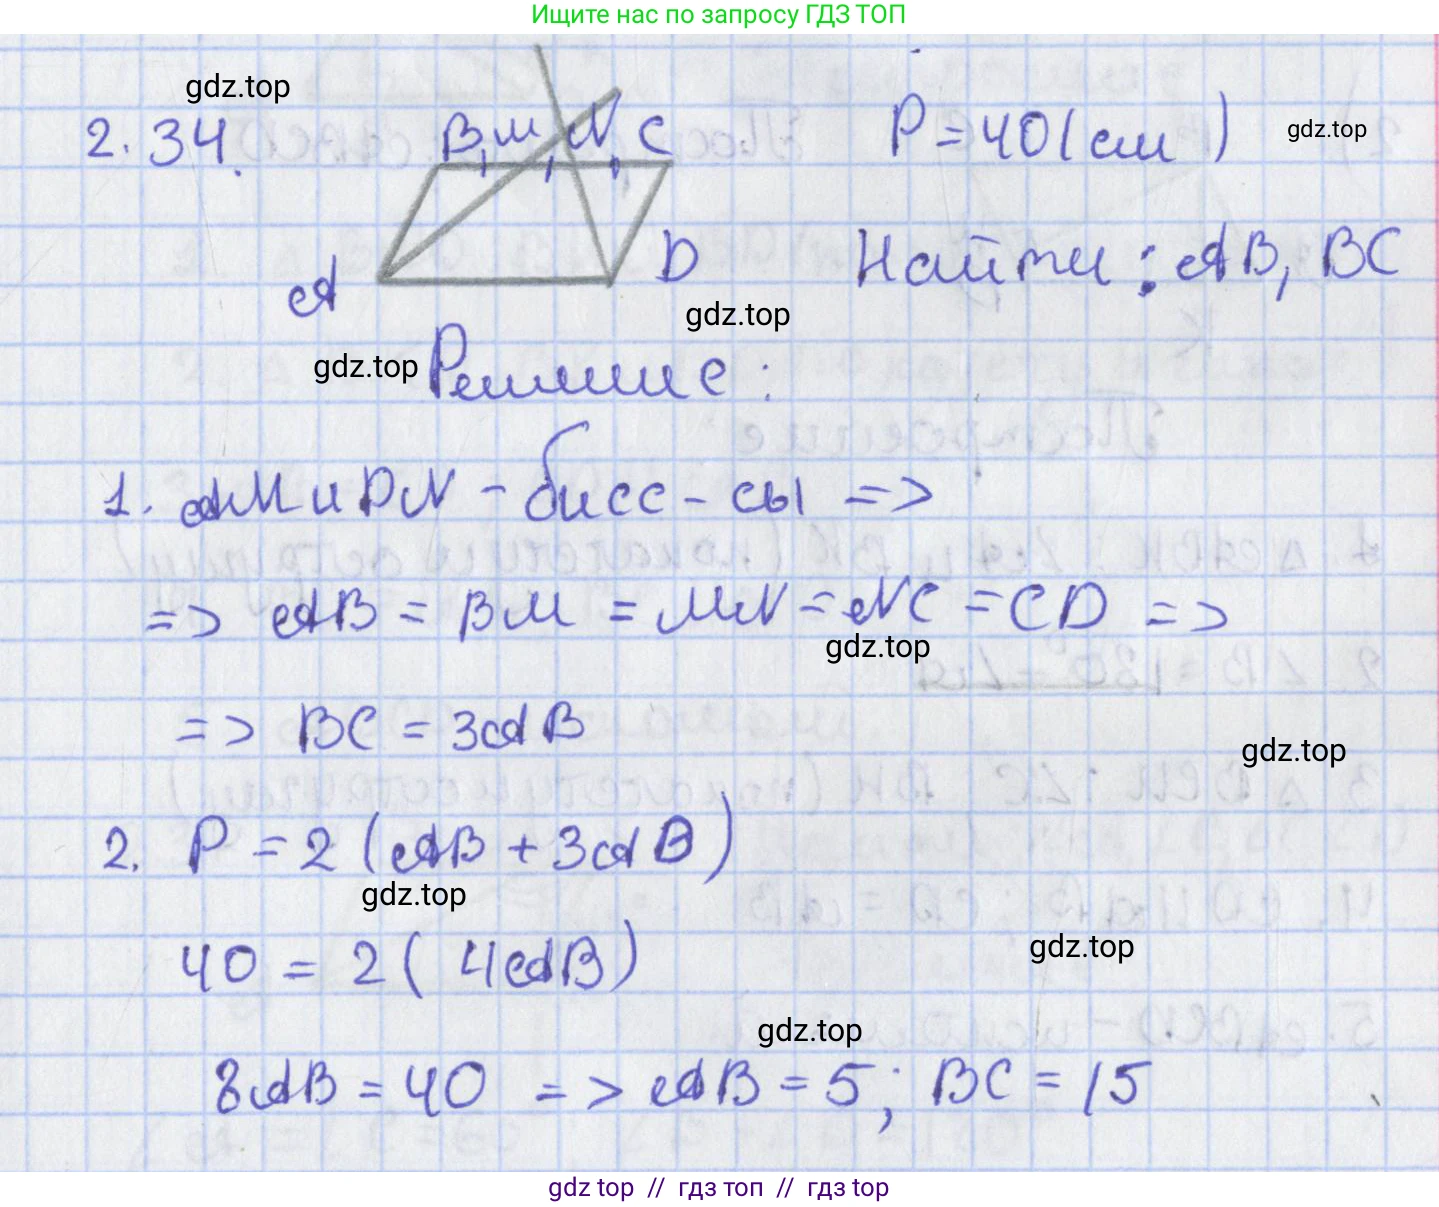 Ищите нас по запросу ГДЗ ТОП
gdz.top
2.34.
B, M, N, C
P = 40 (см)
gdz.top
A
D
Найти: AB, BC
gdz.top
gdz.top
Решение:
1. AM и DN - бисс-сы =>
=> AB = BM = MN = NC = CD =>
gdz.top
=> BC = 3AB
gdz.top
2. P = 2 (AB + 3AB)
gdz.top
40 = 2 ( 4AB)
gdz.top
gdz.top
8AB = 40 => AB = 5; BC = 15
gdz top // гдз топ // гдз top